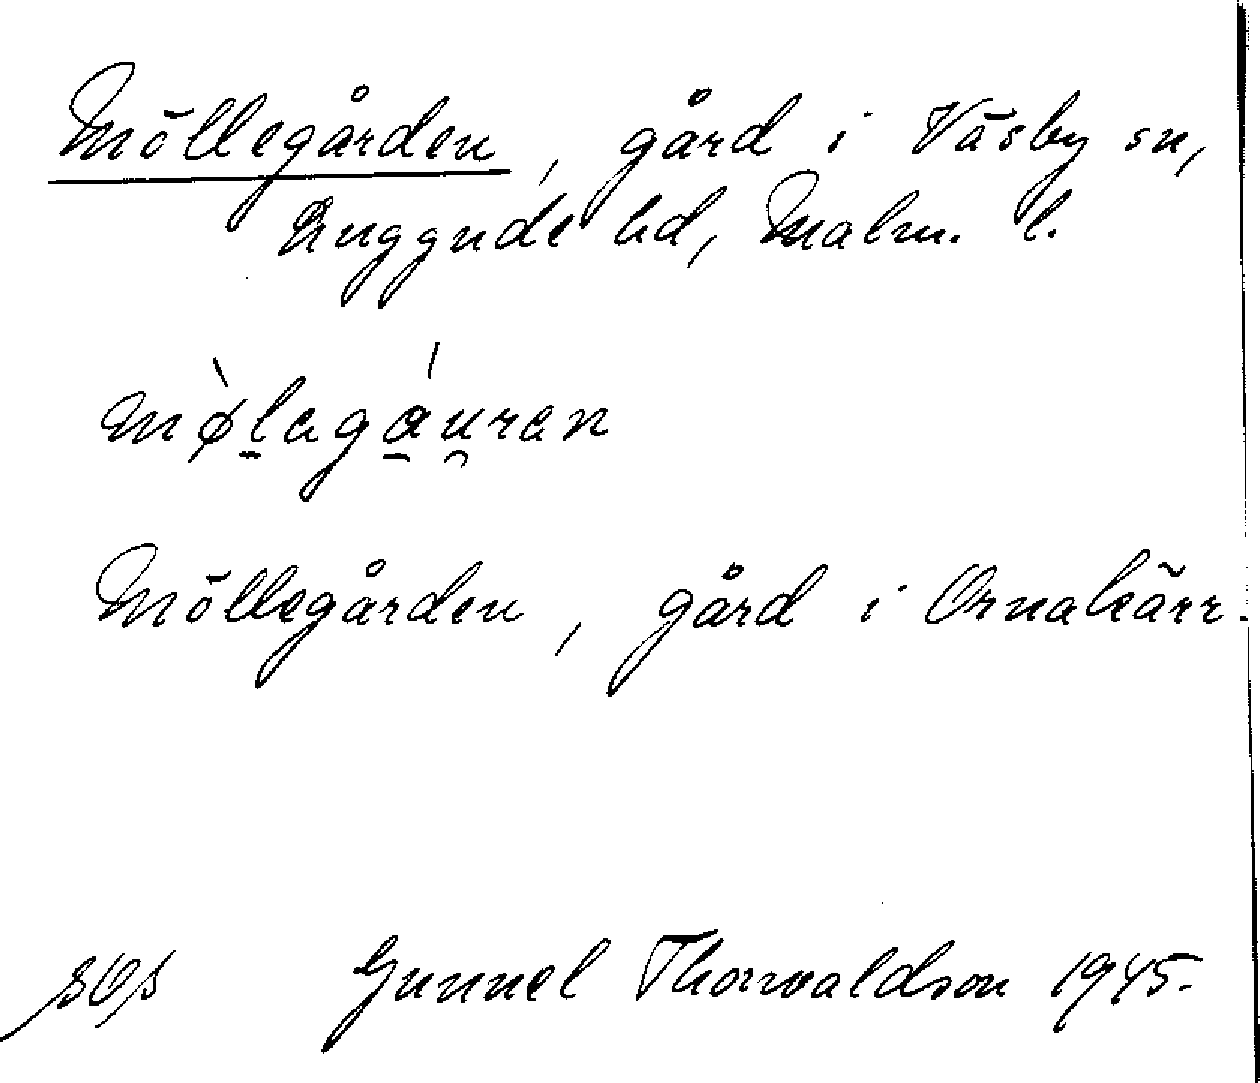 Möllegården, gård i Väsby sn,
Luggude hd, Malm. l.
mø̀l̲agá̲u̯ran
Möllegården, gård i Ornakärr.
Gunnel Thorvaldson 1945.